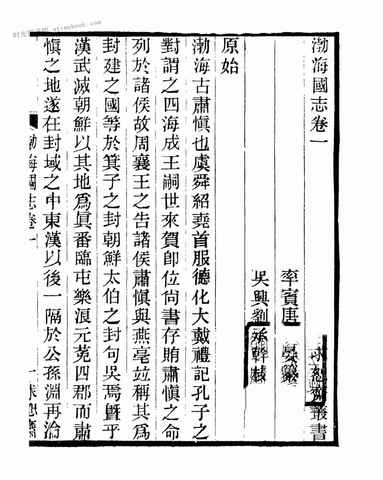 渤海國志卷一
求恕齋叢書
李賓唐
吳興劉承幹
原始
渤海古肅愼也虞舜紹堯首服德化大戴禮記孔子之
對謂之四海成王嗣世來賀卽位尙書存賄肅愼之命
列於諸侯故周襄王之告諸侯肅愼與燕亳竝稱其爲
封建之國等於箕子之封朝鮮太伯之封句吳焉曁乎
漢武滅朝鮮以其地爲眞番臨屯樂浪元菟四郡而肅
愼之地遂在封域之中東漢以後一隔於公孫淵再治
渤海國志卷一
一
求恕齋